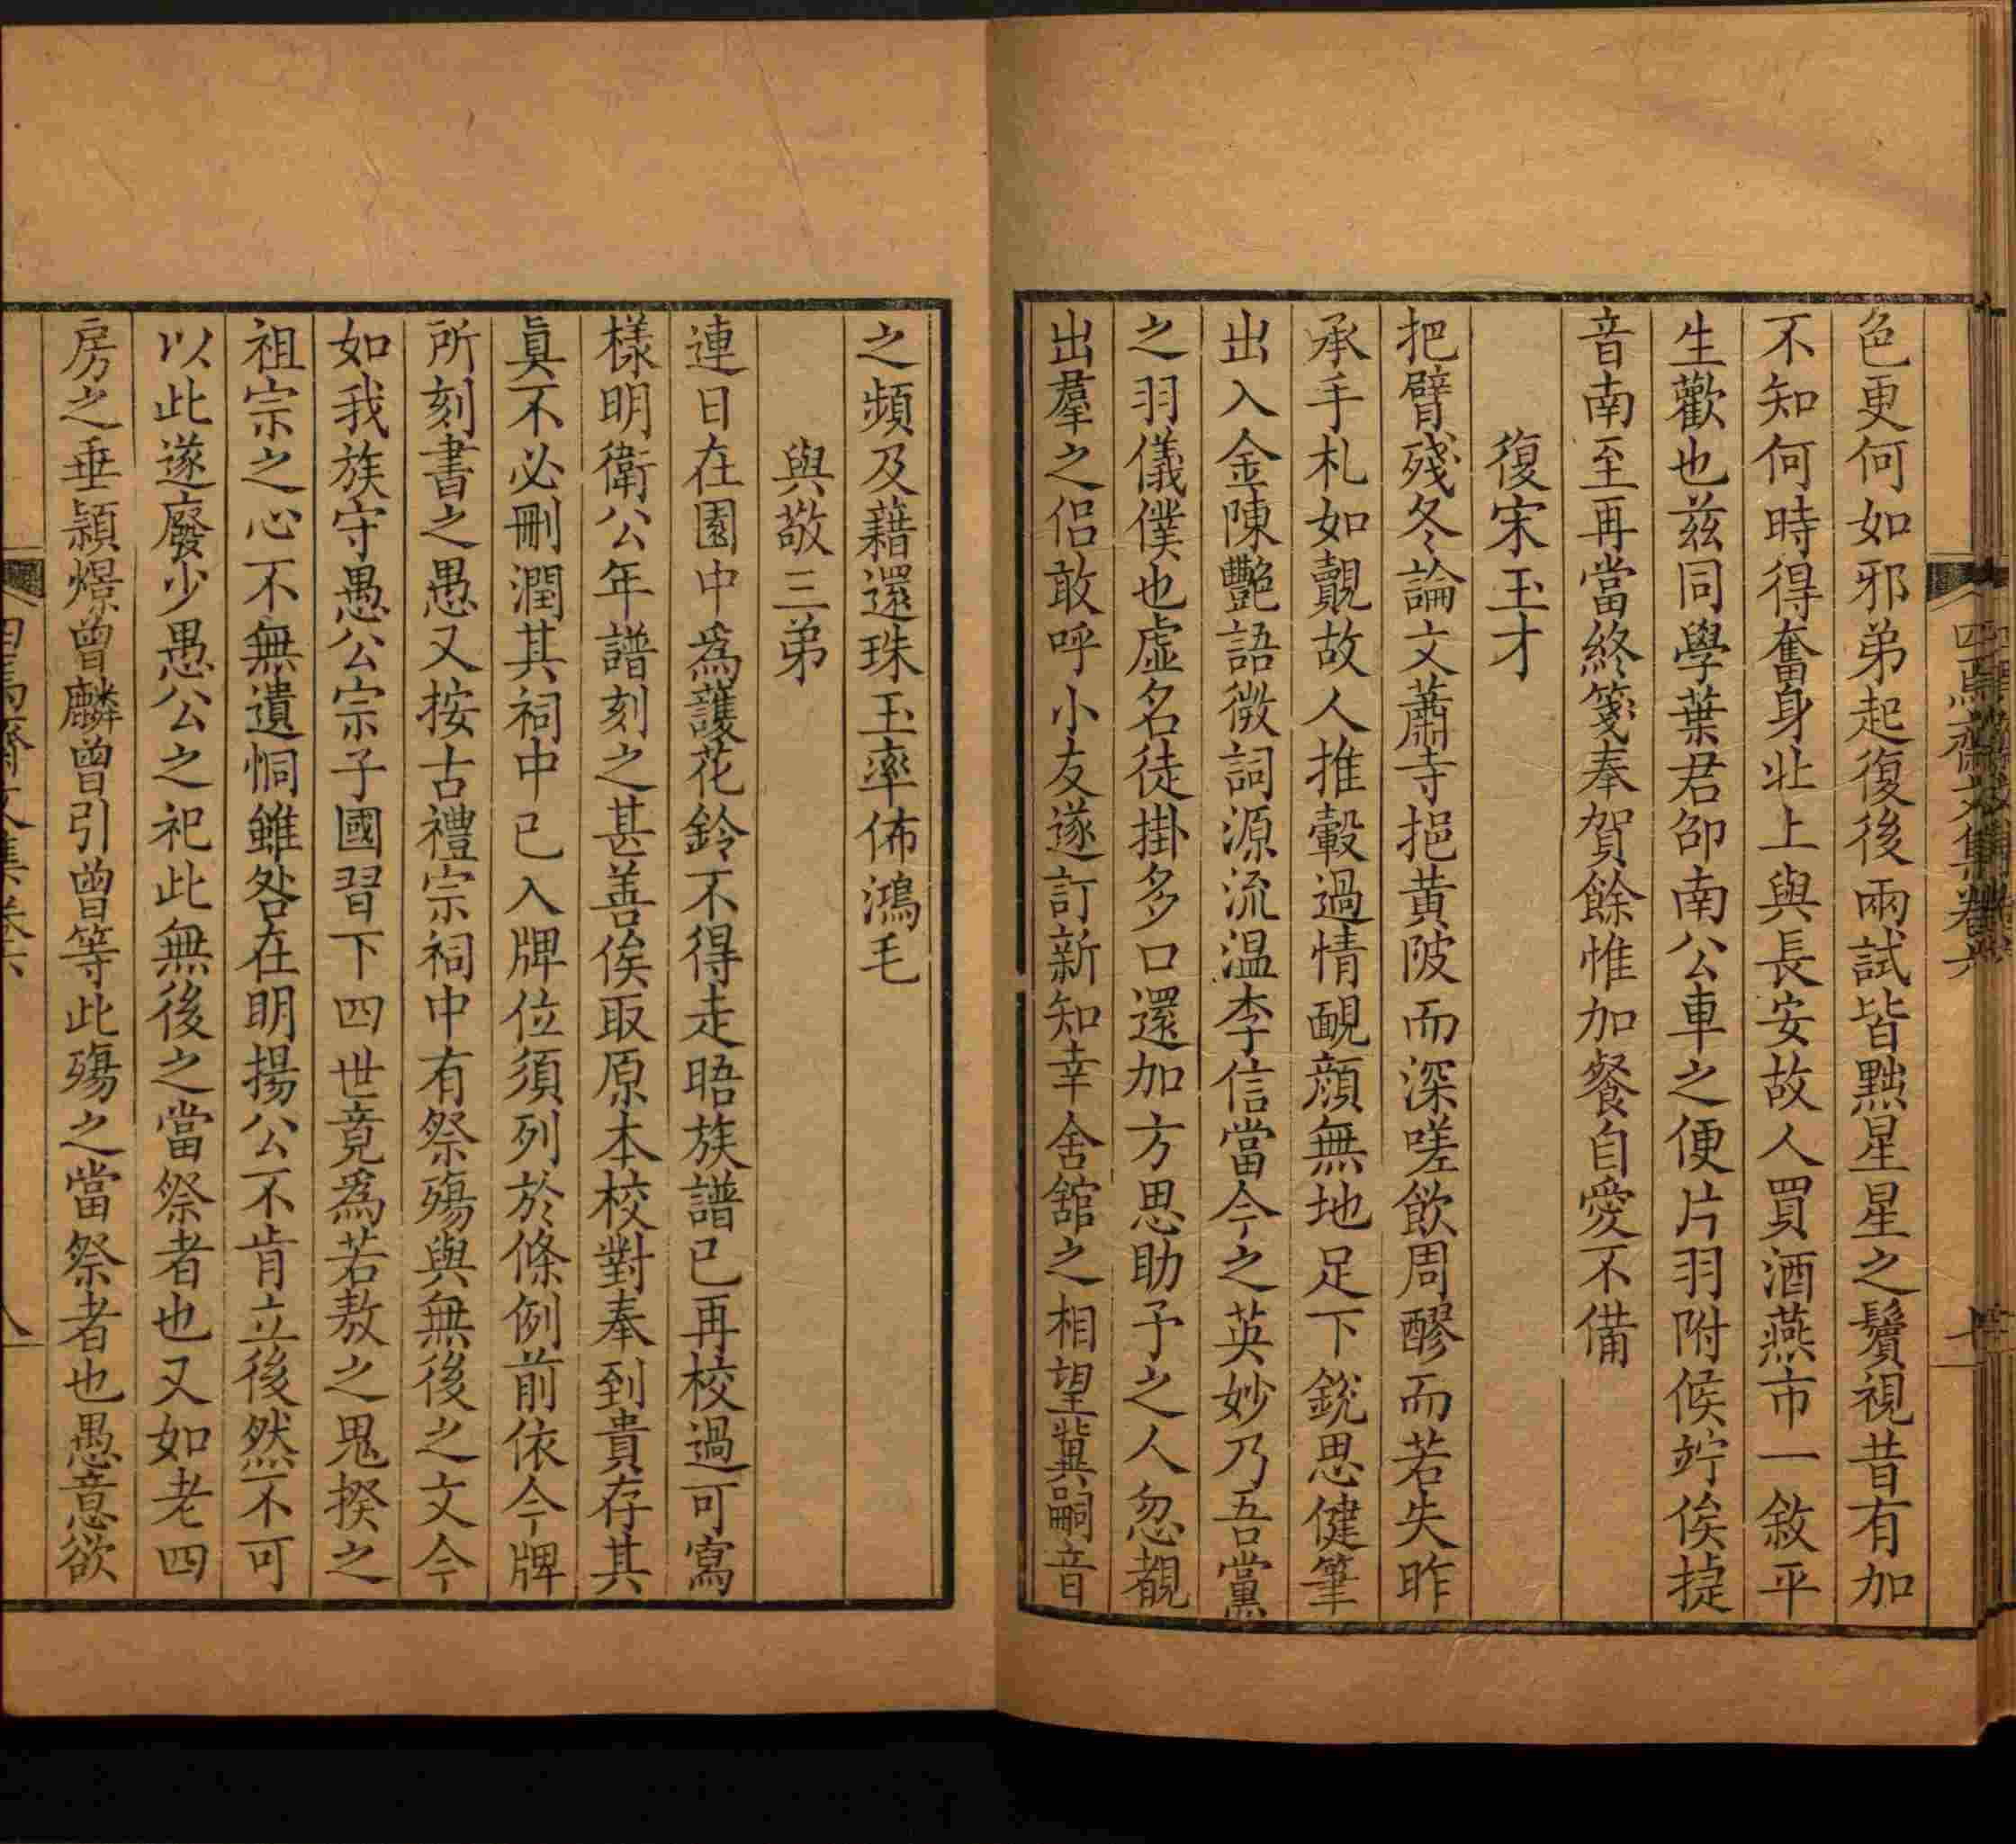 四焉齋文集卷六
七
色更何如邪弟起復後兩試皆黜星星之鬢視昔有加
不知何時得奮身壯上與長安故人買酒燕市一敘平
生歡也茲同學葉君邵南公車之便片羽附候竚俟捷
音南至再當終箋奉賀餘惟加餐自愛不備
復宋玉才
把臂殘冬論文蕭寺挹黃陂而深嗟飲周醪而若失昨
承手札如覿故人推轂過情靦顏無地足下銳思健筆
出入金陳艷語微詞源流溫李信當今之英妙乃吾黨
之羽儀僕也虛名徒掛多口還加方思助予之人忽覩
出羣之侶敢呼小友遂訂新知幸舍舘之相望冀嗣音
之頻及藉還珠玉率佈鴻毛
與敬三弟
連日在園中爲護花鈴不得走晤族譜已再校過可寫
樣明衛公年譜刻之甚善俟取原本校對奉到貴存其
眞不必刪潤其祠中已入牌位須列於條例前依今牌
所刻書之愚又按古禮宗祠中有祭殤與無後之文今
如我族守愚公宗子國習下四世竟爲若敖之鬼揆之
祖宗之心不無遺恫雖咎在明揚公不肯立後然不可
以此遂廢少愚公之祀此無後之當祭者也又如老四
房之垂穎燝曾麟曾引曾等此殤之當祭者也愚意欲
四焉齋文集卷六
八